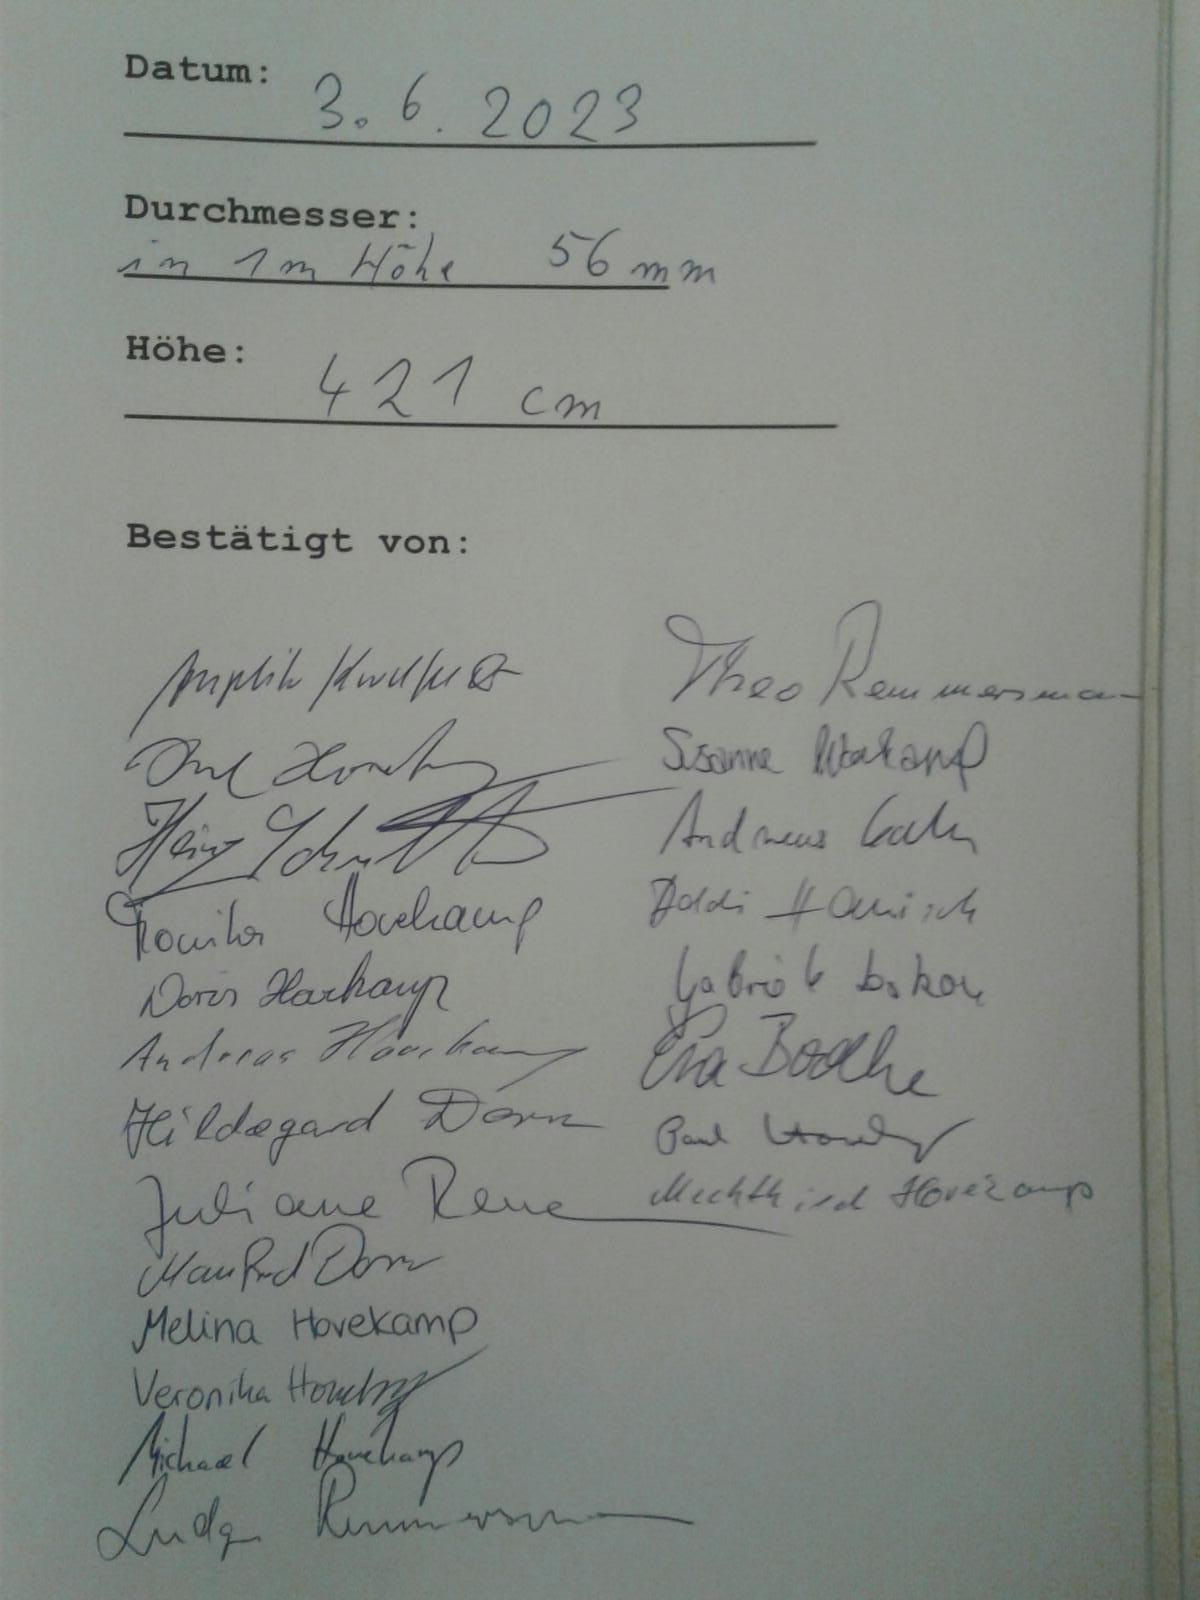 Datum:
3. 6. 2023
Durchmesser:
in 1m Höhe 56 mm
Höhe:
421 cm
Bestätigt von:
Heinz Schmitt
Hovekamp
Doris Hovekamp
Andreas Hovekamp
Hildegard Dorn
Juliane Rene
Manfred Dorn
Melina Hovekamp
Veronika Hovekamp
Michael Hovekamp
Ludger Remmersmann
Theo Remmersmann
Susanne
Andreas
Addi Hanisch
Gabriele
Eva
Paul Hovekamp
Mechthild Hovekamp